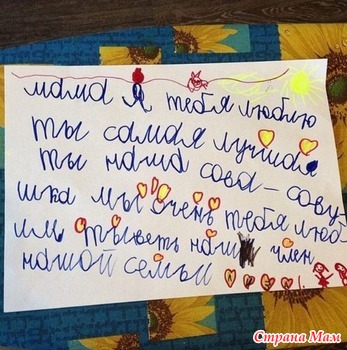 мама Я тебя люблю
ты самая лучшая
ты наша сова - сову-
шка мы очень тебя люб
им тыветь наш член
нашой семьи
Страна Мам